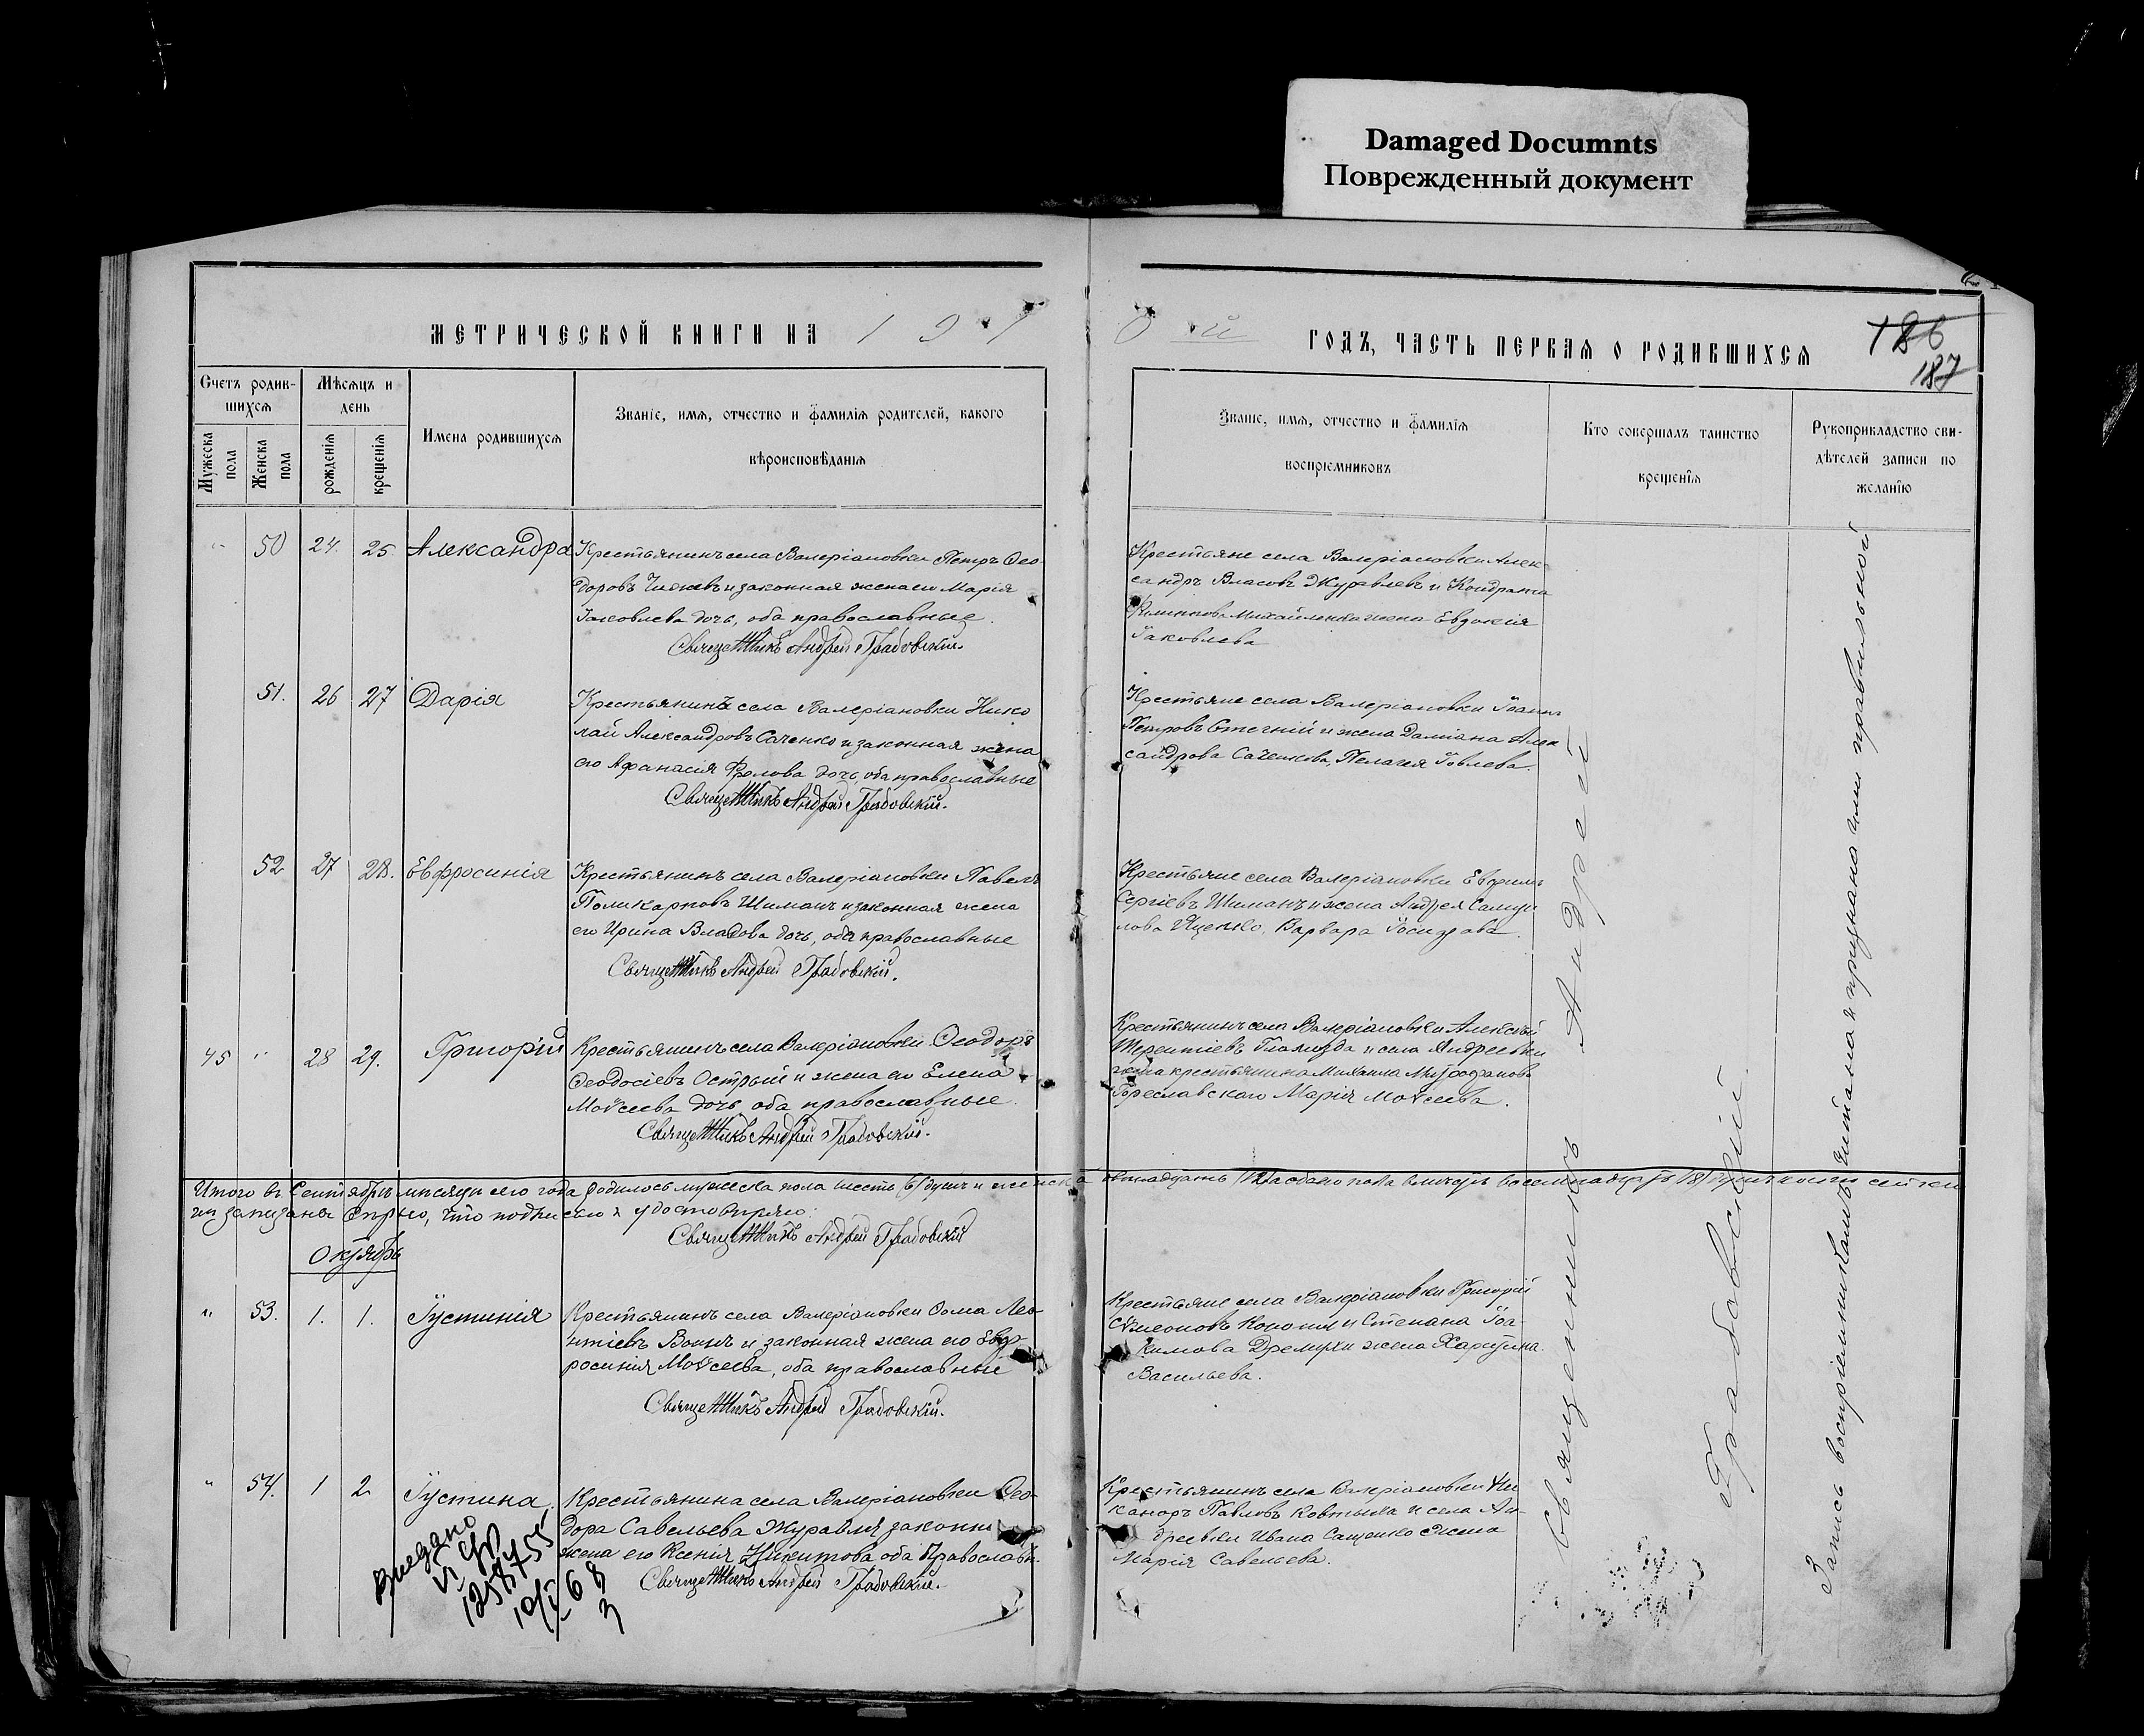 Damaged Documnts
Поврежденный документ
МЕТРИЧЕСКОЙ КНИГИ НА 191
0 й ГОДЪ, ЧАСТЬ ПЕРВАЯ О РОДИВШИХСЯ
186
187
Счетъ родив-
шихся
Мѣсяцъ и
день
Мужеска
пола
Женска
пола
рожденія
крещенія
Имена родившихся
Званіе, имя, отчество и фамилія родителей, какого
вѣроисповѣданія
Званіе, имя, отчество и фамилія
воспріемниковъ
Кто совершалъ таинство
крещенія
Рукоприкладство сви-
дѣтелей записи по
желанію
" 50 24. 25. Александра
Крестьянинъ села Валеріановки Петръ Ѳео-
доровъ и законная жена его Марія
Іаковлева дочь, оба православные.
Священникъ Андрей Грабовскій.
Крестьяне села Валеріановки Алек-
сандръ Власовъ Журавлевъ и Кондрата
Филиппова Михайленка жена Евдокія
Іаковлева
51. 26 27 Дарія
Крестьянинъ села Валеріановки Нико
лай Александровъ Саченко и законная жена
его Афанасія Фролова дочь, оба православные
Священникъ Андрей Грабовскій.
Крестьяне села Валеріановки Іоаннъ
Петровъ и жена Даміана Алек
сандрова Саченкова, Пелагея Іовлева.
52 27 28. Евфросинія
Крестьянинъ села Валеріановки Павелъ
Поликарповъ Шиманъ и законная жена
его Ирина Владова дочь, оба православные
Священникъ Андрей Грабовскій.
Крестьяне села Валеріановки Евфимъ
Сергіевъ Шиманъ и жена Андрея Самуи
лова Яценко, Варвара
45 " 28 29. Григорій
Крестьянинъ села Валеріановки Ѳеодоръ
Ѳеодосіевъ Острый и жена его Елена
Моѵсеева дочь, оба православные.
Священникъ Андрей Грабовскій.
Крестьянинъ села Валеріановки Алексѣй
Терентіевъ и села Андреевки
жена крестьянина Михаила Митрофанова
Гореславскаго Марія Моѵсеева.
Итого въ Сентябрѣ мѣсяцѣ сего года родилось мужеска пола шесть (6) душъ и женска двѣнадцать (12) а обоего пола восемнадцать (18) душъ
записаны вѣрно, что подписью и удостовѣряю:
Священникъ Андрей Грабовскій
Октябрь
" 53. 1. 1. Іустинія
Крестьянинъ села Валеріановки Ѳома Лео-
нтіевъ и законная жена его Евф-
росинія Моѵсеева, оба православные
Священникъ Андрей Грабовскій.
Крестьяне села Валеріановки Григорій
Сѵмеоновъ и Стефана Іоа-
кимова Дремухи жена Харитина
Васильева.
" 54. 1 2 Іустина.
Крестьянина села Валеріановки Ѳео-
дора Савельева Журавля законн
жена его Ксенія Никитова оба Православн.
Священникъ Андрей Грабовскій.
Крестьянинъ села Валеріановки Ни-
каноръ Павловъ Ковтыка и села Ан-
дреевки Ивана Сащенко жена
Марія Савельева.
Священникъ Андрей
Грабовскій.
Запись воспріемниками читана и признана ими правильной